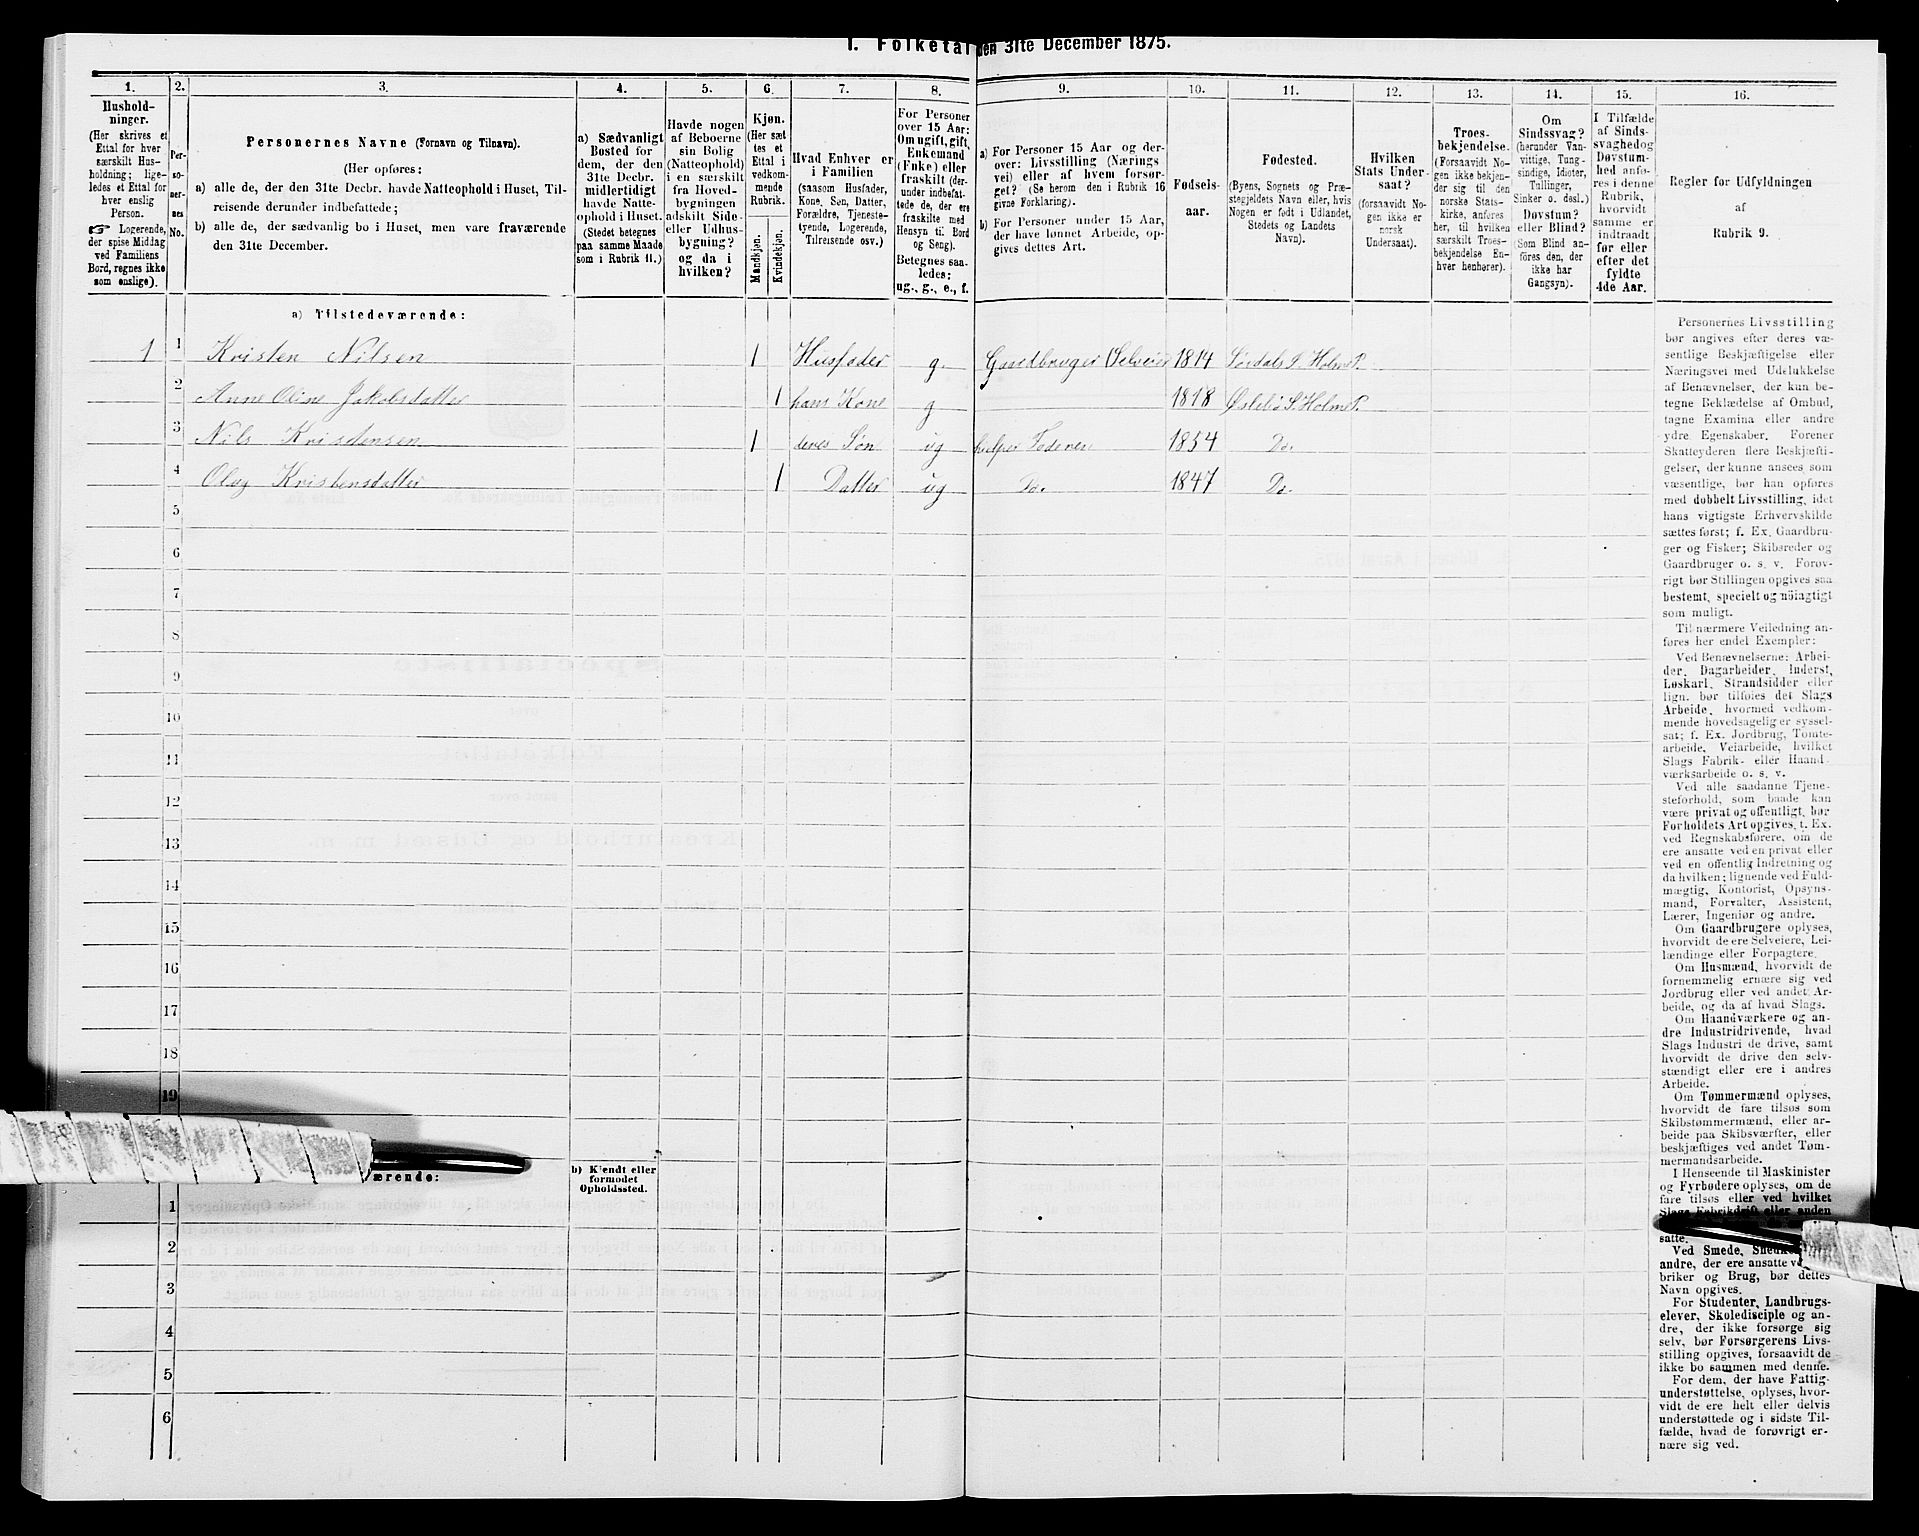 I. Folketal den 31te December 1875.
1.
Hushold-
ninger.
(Her skrives et
Ettal for hver
særskilt Hus-
holdning; lige-
ledes et Ettal for
hver enslig
Person.
☞ Logerende,
der spise Middag
ved Familiens
Bord, regnes ikke
som enslige).
2.
Per-
so-
ner-
nes
No.
3.
Personernes Navne (Fornavn og Tilnavn).
(Her opføres:
a) alle de, der den 31te Decbr. havde Natteophold i Huset, Til-
reisende derunder indbefattede;
b) alle de, der sædvanlig bo i Huset, men vare fraværende
den 31te December.
4.
a) Sædvanligt
Bosted for
dem, der den
31te Decbr.
midlertidigt
havde Natte-
ophold i Huset.
(Stedet betegnes
paa samme Maade
som i Rubrik 11.)
5.
Havde nogen
af Beboerne
sin Bolig
(Natteophold)
i en særskilt
fra Hoved-
bygningen
adskilt Side-
eller Udhus-
bygning?
og da i
hvilken?
6.
Kjøn.
(Her sæt
tes et
Ettal i
vedkom-
mende
Rubrik.
Mandkjøn.
Kvindekjøn.
7.
Hvad Enhver er
i Familien
(saasom Husfader,
Kone, Søn, Datter,
Forældre, Tjeneste-
tyende, Logerende,
Tilreisende osv.)
8.
For Personer
over 15 Aar:
Om ugift, gift,
Enkemand
(Enke) eller
fraskilt (der-
under indbefat-
tede de, der ere
fraskilte med
Hensyn til Bord
og Seng).
Betegnes saa-
ledes:
ug., g., e., f.
9.
a) For Personer 15 Aar og der-
over: Livsstilling (Nærings
vei) eller af hvem forsør-
get? (Se herom den i Rubrik 16
givne Forklaring).
b) For Personer under 15 Aar,
der have lønnet Arbeide, op-
gives dettes Art.
10.
Fødsels-
aar.
11.
Fødested.
(Byens, Sognets og Præ-
stegjeldets Navn eller, hvis
Nogen er født i Udlandet,
Stedets og Landets
Navn).
12.
Hvilken
Stats Under-
saat?
(forsaavidt No-
gen ikke er
norsk
Undersaat).
13.
Troes-
bekjendelse.
(Forsaavidt No-
gen ikke bekjen-
der sig til den
norske Stats-
kirke, anføres
her, til hvilken
særskilt Troes-
bekjendelse En-
hver henhører).
14.
Om
Sindssvag?
(herunder Van-
vittige, Tung-
sindige, Idioter,
Tullinger,
Sinker o. desl.)
Døvstum?
eller Blind?
(Som Blind an-
føres den, der
ikke har
Gangsyn).
15.
I Tilfælde
af Sinds-
svaghedog
Døvstum-
hed anfø-
res i denne
Rubrik,
hvorvidt
samme er
indtraadt
før eller
efter det
fyldte
4de Aar.
16.
Regler for Udfyldningen
af
Rubrik 9.
a) Tilstedeværende:
1 1 Kristen Nilsen 1 Husfader g. Gaardbruger (Selveier 1814 Søvdals S. Holms P.
2 Anne Oline Jakobsdatter 1 hans Kone g 1818 Øslebø S. Holms P.
3 Nils Kristensen 1 deres Søn ug hjelper Faderen 1854 Do.
4 Olag Kristensdatter 1 Datter ug Do. 1847 Do.
5
6
7
8
9
10
11
12
13
14
15
16
17
18
19
ærende:
b) Kjendt eller
formodet
Opholdssted.
1
2
3
4
5
6
Personernes Livsstilling
bør angives efter deres væ-
sentlige Beskjæftigelse eller
Næringsvei med Udelukkelse
af Benævnelser, der kun be-
tegne Beklædelse af Ombud,
tagne Examina eller andre
ydre Egenskaber. Forener
Skatteyderen flere Beskjæfti-
gelser, der kunne ansees som
væsentlige, bør han opføres
med dobbelt Livsstilling, idet
hans vigtigste Erhvervskilde
sættes først; f. Ex. Gaardbru-
ger og Fisker; Skibsreder og
Gaardbruger o. s. v. Forøv-
rigt bør Stillingen opgives saa
bestemt, specielt og nøiagtigt
som muligt.
Til nærmere Veiledning an-
føres her endel Exempler:
Ved Benævnelserne: Arbei-
der, Dagarbeider, Inderst,
Løskarl, Strandsidder eller
lign. bør tilføies det Slags
Arbeide, hvormed vedkom-
mende hovedsagelig er syssel-
sat; f. Ex. Jordbrug, Tomte-
arbeide, Veiarbeide, hvilket
Slags Fabrik- eller Haand-
værksarbeide o. s. v.
Ved alle saadanne Tjene-
steforhold, som baade kan
være privat og offentligt, bør
Forholdets Art opgives, f. Ex.
ved Regnskabsførere, om de
ere ansatte ved en privat eller
ved en offentlig Indretning og
da hvilken; lignende ved Fuld-
mægtig, Kontorist, Opsyns-
mand, Forvalter, Assistent,
Lærer, Ingeniør og andre.
Om Gaardbrugere oplyses,
hvorvidt de ere Selveiere, Lei-
lændinge eller Forpagtere.
Om Husmænd, hvorvidt de
fornemmelig ernære sig ved
Jordbrug eller ved andet Ar-
beide, og da af hvad Slags.
Om Haandværkere og an-
dre Industridrivende, hvad
Slags Industri de drive, samt
hvorvidt de drive den selv-
stændigt eller ere i andres
Arbeide.
Om Tømmermænd oplyses,
hvorvidt de fare tilsøs som
Skibstømmermænd, eller ar-
beide paa Skibsværfter, eller
beskjæftiges ved andet Tøm-
mermandsarbeide.
I Henseende til Maskinister
og Fyrbødere oplyses, om de
fare tilsøs eller ved hvilket
Slags Fabrikdrift eller anden
satte.
Ved Smede, Snedke
andre, der ere ansatte ve
briker og Brug, bør dettes
Navn opgives.
For Studenter, Landbrugs-
elever, Skoledisciple og an-
dre, der ikke forsørge sig
selv, bør Forsørgerens Livs-
stilling opgives, forsaavidt de
ikke bo sammen med denne.
For dem, der have Fattig-
understøttelse, oplyses, hvor-
vidt de ere helt eller delvis
understøttede og i sidste Til-
fælde, hvad de forøvrigt er-
nære sig ved.